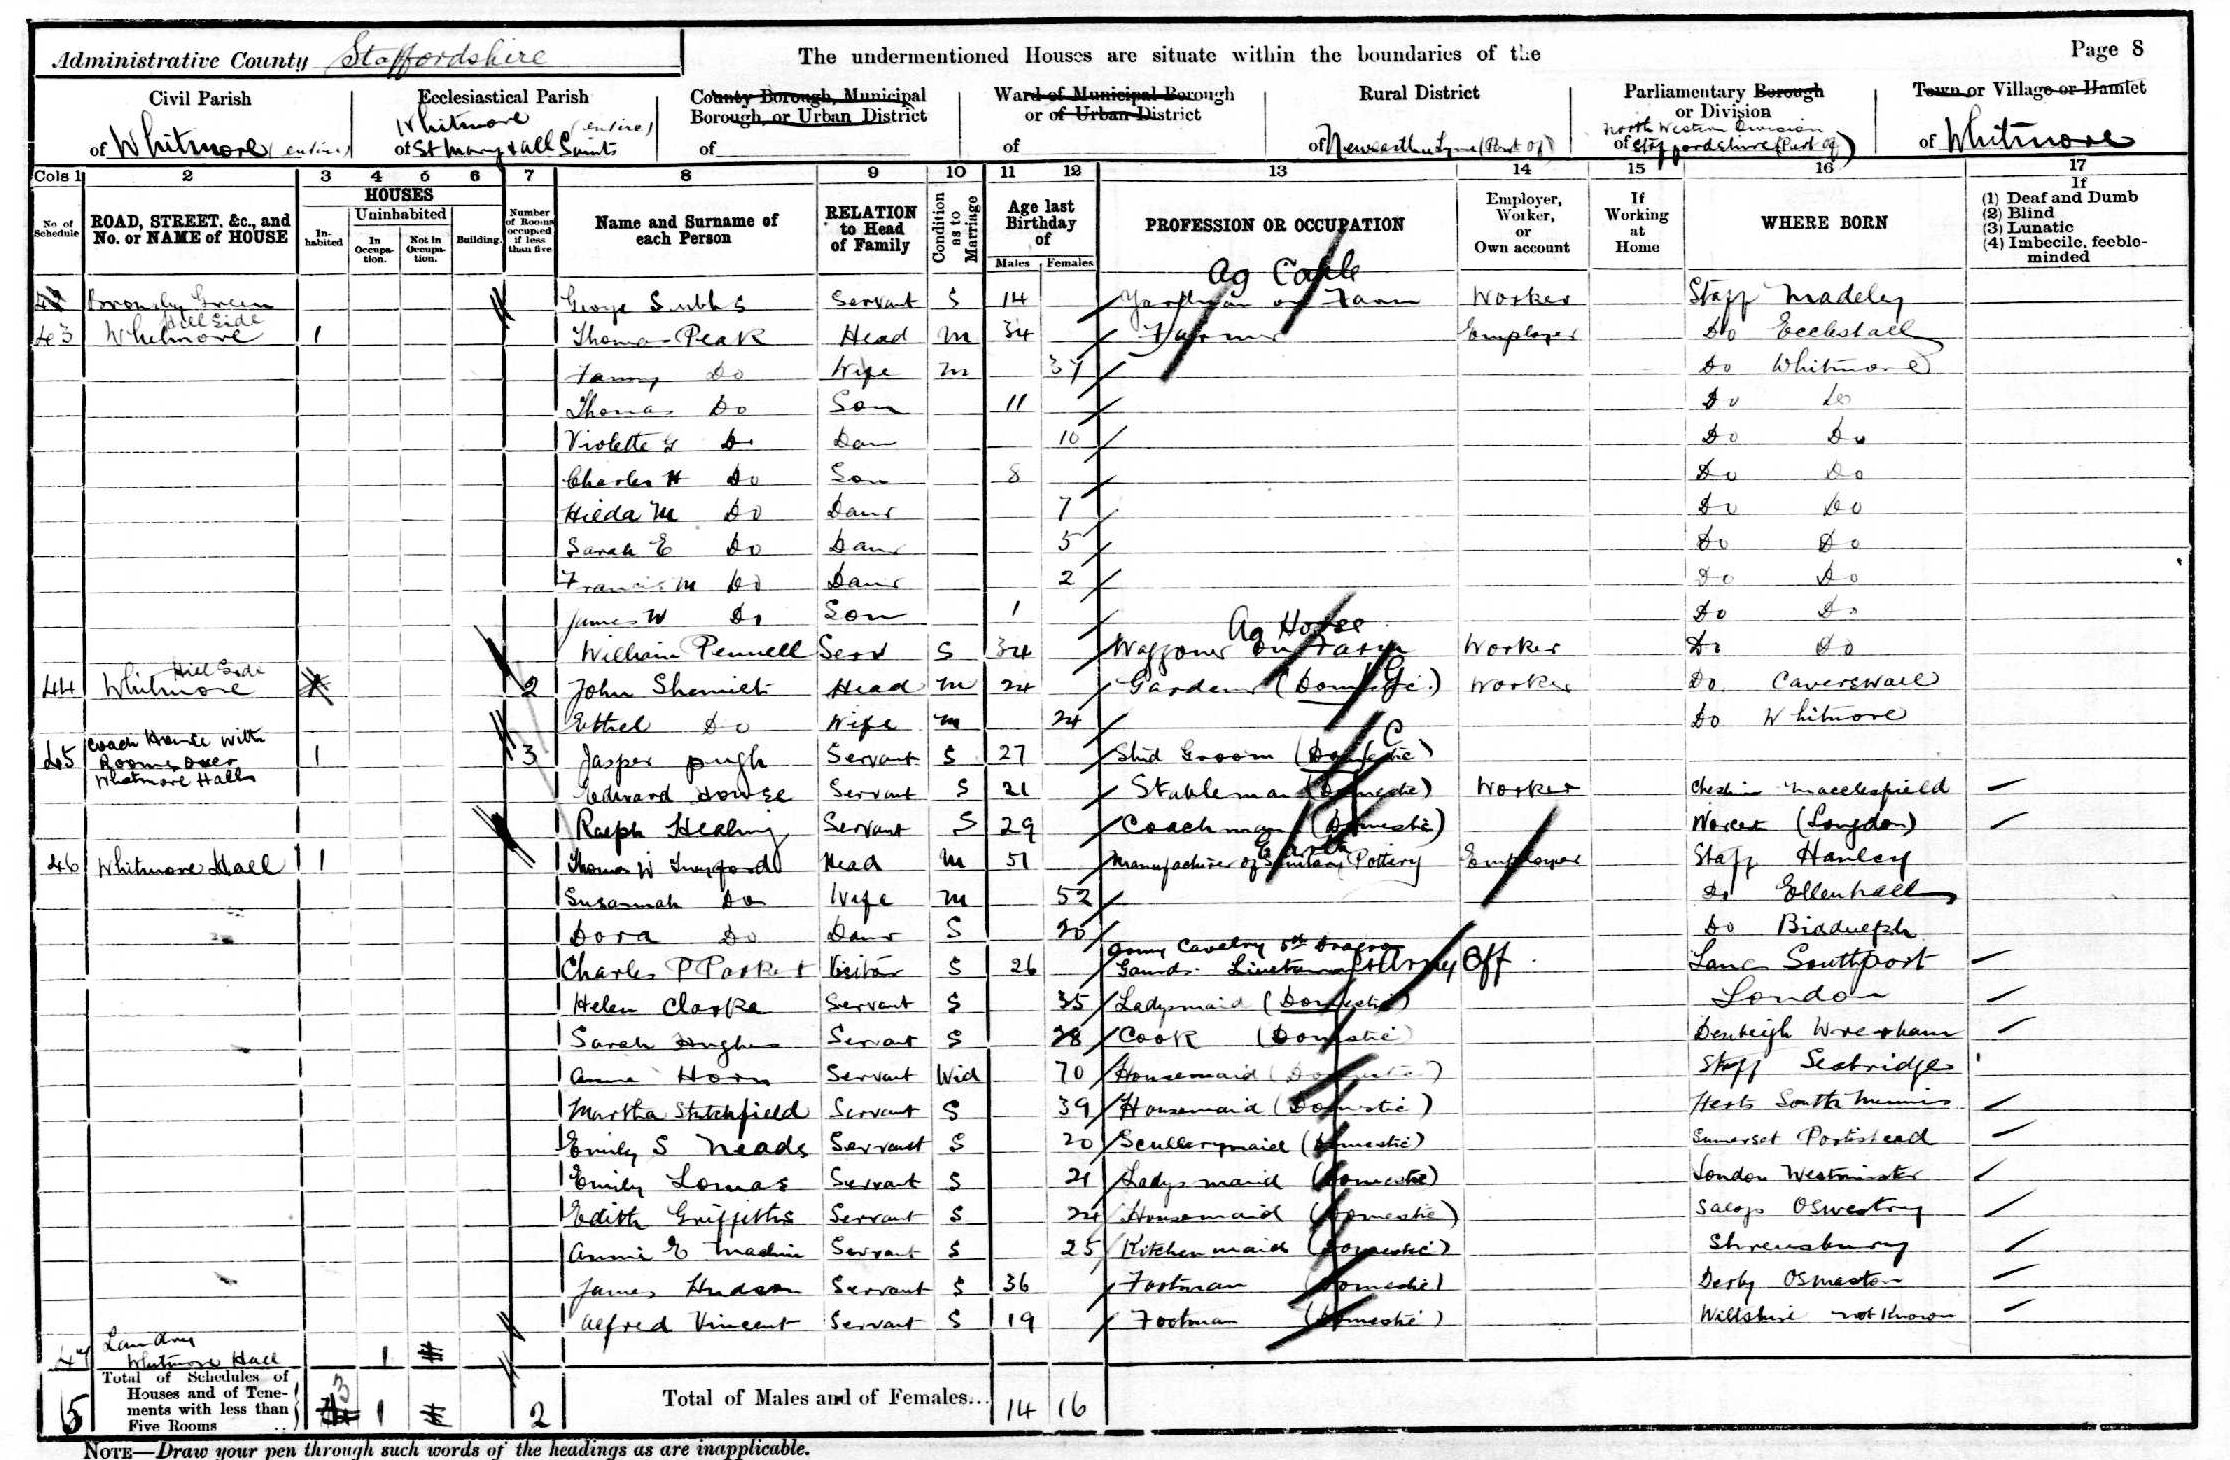 Administrative County Staffordshire
The undermentioned Houses are situate within the boundaries of the
Page 8
Civil Parish
of Whitmore (entire)
Ecclesiastical Parish
Whitmore (entire)
of St Mary & All Saints
County Borough, Municipal
Borough, or Urban District
of
Ward of Municipal Borough
or of Urban District
of
Rural District
of Newcastle u Lyme (Part of)
Parliamentary Borough
or Division
North Western Division
of Staffordshire (Part of)
Town or Village or Hamlet
of Whitmore
Cols 1 2 3 4 5 6 7 8 9 10 11 12 13 14 15 16 17
No. of Schedule
ROAD, STREET, &c., and No. or NAME of HOUSE
HOUSES
Inhabited
Uninhabited
In Occupation.
Not in Occupation.
Building.
Number of Rooms occupied if less than five
Name and Surname of each Person
RELATION to Head of Family
Condition as to Marriage
Age last Birthday of
Males Females
PROFESSION OR OCCUPATION
Employer, Worker, or Own account
If Working at Home
WHERE BORN
If
(1) Deaf and Dumb
(2) Blind
(3) Lunatic
(4) Imbecile, feeble-minded
Ag Cattle
42 Green George Stubbs Servant S 14 Yardman on Farm Worker Staff Madeley
43 Hill Side Whitmore 1 Thomas Peak Head M 34 Farmer Employer Do Eccleshall
Fanny Do Wife M 37 Do Whitmore
Thomas Do Son 11 Do Do
Violette G Do Dau 10 Do Do
Charles H Do Son 8 Do Do
Hilda M Do Daur 7 Do Do
Sarah E Do Daur 5 Do Do
Francis M Do Daur 2 Do Do
James W Do Son 1 Do Do
Ag Horse
William Pennell Serv S 34 Waggoner on Farm Worker Do Do
44 Hill Side Whitmore 1 2 John Head M 24 Gardener (Domestic) G Worker Do Caverswall
Ethel Do Wife M 24 Do Whitmore
45 Coach House with Rooms over Whitmore Hall 1 3 Jasper Pugh Servant S 27 Stud Groom (Domestic) C
Edward Howse Servant S 21 Stableman (Domestic) Worker Cheshire Macclesfield
Ralph Healing Servant S 29 Coachman (Domestic) Worcest (Longdon)
46 Whitmore Hall 1 Thomas W Twyford Head M 51 Manufacturer of Sanitary Pottery Earth Employer Staff Hanley
Susannah Do Wife M 52 Do Ellenhall
Dora Do Daur S 20 Do Biddulph
Charles P Visitor S 26 Army Cavalry 6th Dragoon Guards. Lieutenant Army Off Lancs Southport
Helen Clarke Servant S 35 Ladysmaid (Domestic) London
Sarah Hughes Servant S 28 Cook (Domestic) Denbeigh Wrexham
Anne Horn Servant Wid 70 Housemaid (Domestic) Staff Seabridge
Martha Stutchfield Servant S 39 Housemaid (Domestic) Herts South Mimms
Emily S Neads Servant S 20 Scullerymaid (Domestic) Somerset Portishead
Emily Lomas Servant S 21 Ladys maid (Domestic) London Westminster
Edith Griffiths Servant S 24 Housemaid (Domestic) Salop Oswestry
Annie E Machin Servant S 25 Kitchen maid (Domestic) Shrewsbury
James Hudson Servant S 36 Footman (Domestic) Derby Osmaston
Alfred Vincent Servant S 19 Footman (Domestic) Willshire not Known
47 Laundry Whitmore Hall 1
5 Total of Schedules of Houses and of Tenements with less than Five Rooms 3 1 2 Total of Males and of Females... 14 16
NOTE—Draw your pen through such words of the headings as are inapplicable.